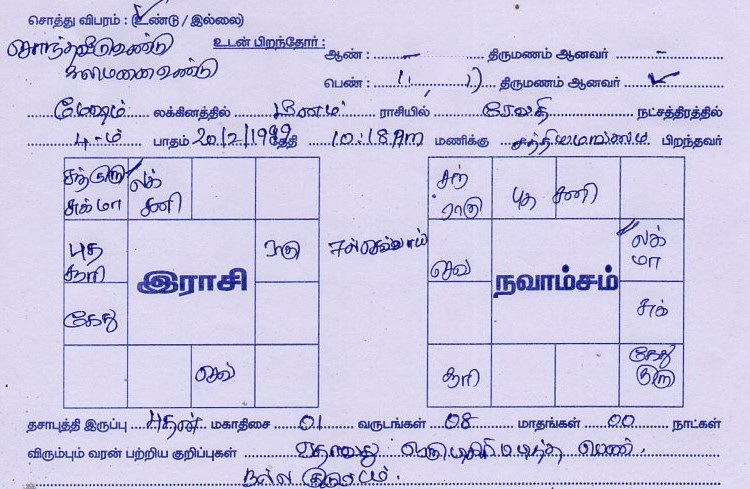 சொத்து விபரம் : (உண்டு / இல்லை)
சொந்தவீடுஉண்டு உடன் பிறந்தோர் : ஆண் : – திருமணம் ஆனவர் –
காலிமனைஉண்டு பெண் : 1 திருமணம் ஆனவர் ✓
மேஷம் லக்கினத்தில் மீனம் ராசியில் ரேவதி நட்சத்திரத்தில்
4-ம் பாதம் 20/2/1999 தேதி 10:18AM மணிக்கு சத்தியமங்கலம் பிறந்தவர்
சந் குரு லக்
சுக் மா சனி
புத ராகு
சூரி
இராசி
கேது
செவ்
7ல் செவ்வாய்
சந் புத சனி
ராகு
லக்
செவ் மா
நவாம்சம்
சுக்
சூரி கேது
குரு
தசாபுத்தி இருப்பு புதன் மகாதிசை 01 வருடங்கள் 08 மாதங்கள் 00 நாட்கள்
விரும்பும் வரன் பற்றிய குறிப்புகள் ஏதாவது டிகிரி படித்த பெண்.
நல்ல குடும்பம்.